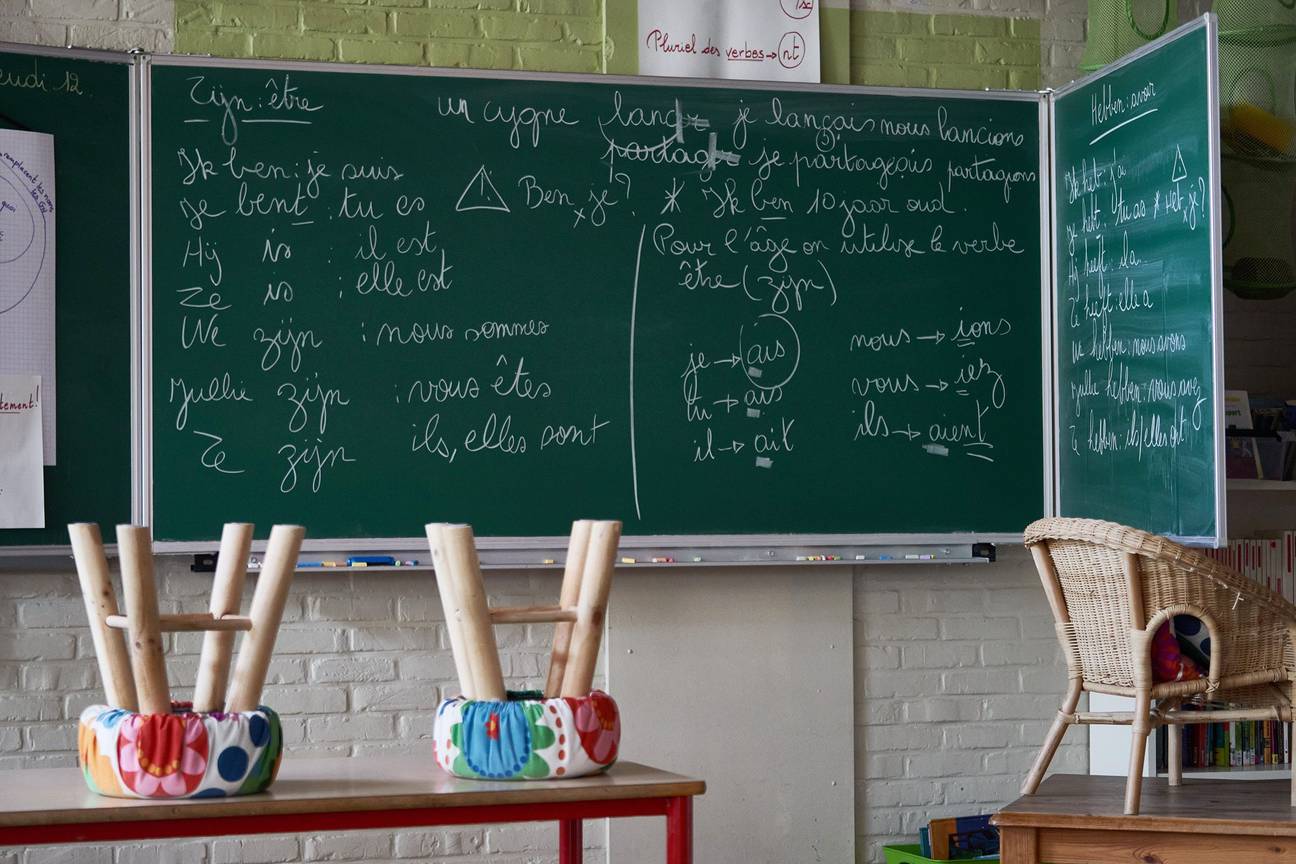 eudi 12
remplacent les noms
quoi
tement!
Pluriel des verbes → nt
Zijn : être
Ik ben : je suis
je bent : tu es
⚠ Ben je?
Hij is : il est
Ze is : elle est
We zijn : nous sommes
Jullie zijn : vous êtes
Ze zijn ils, elles sont
un cygne lancer je lançais nous lancions
partag je partageais partagions
* Ik ben 10 jaar oud.
Pour l'âge on utilise le verbe
être (zijn)
je → ais
tu → ais
il → ait
nous → ions
vous → iez
ils → aient
Hebben : avoir
Ik heb : j'ai
je hebt : tu as * Heb je?
Hij heeft : il a
Ze heeft : elle a
We hebben : nous avons
Jullie hebben : vous avez
Ze hebben : ils/elles ont